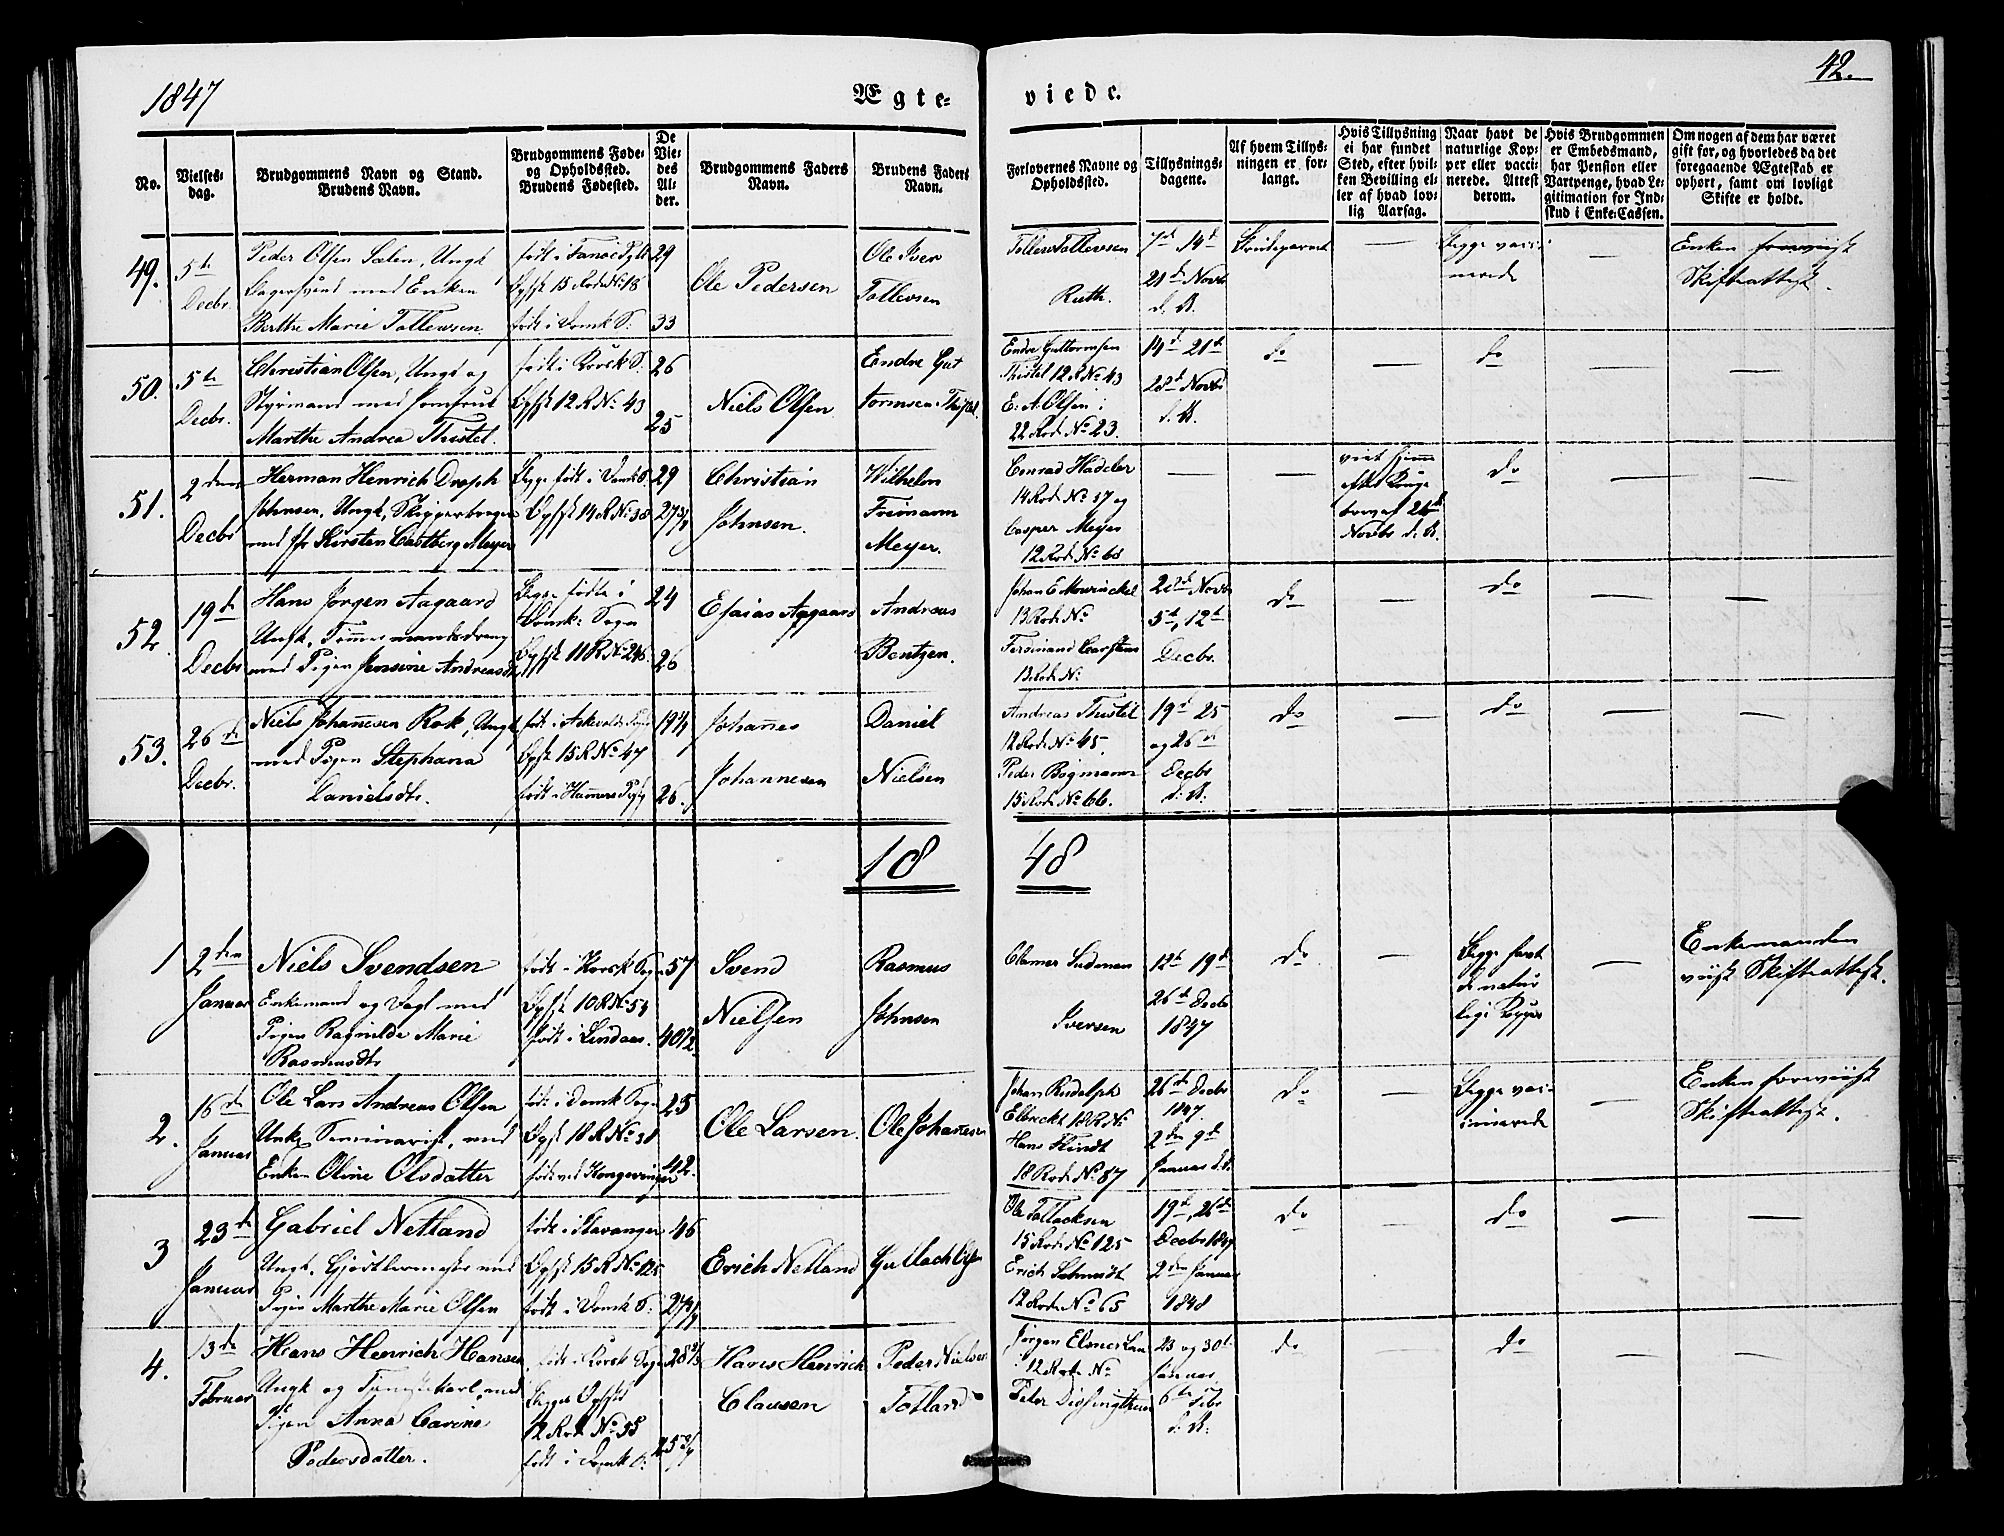 1847
42
Ægte=
viede.
No.
Vielses=
dag.
Brudgommens Navn og Stand.
Brudens Navn.
Brudgommens Føde=
og Opholdssted.
Brudens Fødested.
De
Vie=
des
Al=
der.
Brudgommens Faders
Navn.
Brudens Faders
Navn.
Forlovernes Navne og
Opholdssted.
Tillysnings=
dagene.
Af hvem Tillys=
ningen er for=
langt.
Hvis Tillysning
ei har fundet
Sted, efter hvil=
ken Bevilling el=
ler af hvad lov=
lig Aarsag.
Naar havt de
naturlige Kop=
per eller vacci=
nerede. Attest
derom.
Hvis Brudgommen
er Embedsmand,
har Pension eller
Vartpenge, hvad Le=
gitimation for Ind=
skud i Enke=Cassen.
Om nogen af dem har været
gift før, og hvorledes da det
foregaaende Ægteskab er
ophørt, samt om lovligt
Skifte er holdt.
49.
5te
Decbr.
Peder Olsen Sælen, Ungk
med Enken
Berthe Marie Tollevsen.
født i Fanøe
Opst 15 Rode No 18
født i Domk S.
29
33
Ole Pedersen
Ole Iver
Tollevsen
Tollev Tollevsen
Ruth.
7de 14de
21de Novbr
d. A.
Brudeparret
—
Begge vacci
nerede
—
Enken foreviist
Skifteattest.
50.
5te
Decbr.
Christian Olsen, Ungk og
Styrmand med Jomfrue
Marthe Andrea Thistel.
født i Korsk S.
Opst 12 R No 43
26
25
Niels Olsen
Endre Gut
tormsen Thistel.
Endre Guttormsen
Thistel 12 R No 43
E. A. Olsen i
22 Rod. No 23.
14de 21de
28de Novbr
d. A.
do
—
do
—
—
51.
2den
Decbr
Herman Henrich
Johnsen, Ungk, Skipperborger
med Jfr Kirsten Castberg Meyer
Begge født i Domk S.
Opst 14 R No 38
29
27 3/4
Christian
Johnsen.
Wilhelm
Friman
Meyer.
Conrad Hadeler
14 Rod. No 37 og
Casper Meyer
12 Rod. No 68
—
—
viet hjeme
efter Konge
brev af 26de
Novbr d. A.
do
—
—
52.
19de
Decbr
Hans Jørgen Aagaard
Ungk. Tømmermandsdreng
med Pigen Jensine Andreasdtr
Begge fødte i
Domk. Sogn
Opst 11 R No 246
24
26
Esaias Aagaard
Andreas
Bentzen.
Johan E Mowinckel
13 Rod. No
Ferdinand Carstens
13 Rod. No
28de Novbr
5te, 12te
Decbr.
do
—
do
—
—
53.
26de
Decbr.
Niels Johannesen Rok, Ungk
med Pigen Stephana
Danielsdtr.
født i Askevold
Opst 15 R No 47
født i Hammers
19 1/2
26.
Johannes
Johannesen
Daniel
Nielsen
Andreas Thistel
12 Rod. No 45.
Peder Bogmann
15 Rod. No 66.
19de 25
og 26de
Decbr
d. A.
do
—
do
—
—
18
48
1
2den
Januar
Niels Svendsen
Enkemand og Vagt med
Pigen Ragnilde Marie
Rasmusdtr
født i Korsk Sogn
Opst 10 R No 54
født i Lindaas.
57
40 1/2
Svend
Nielsen
Rasmus
Johnsen
Clamer Sudman
Iversen
12te 19de
26de Decbr
1847
do
—
Begge havt
de natur
lige Kopper
—
Enkemanden
viist Skifteattest.
2.
16de
Januar
Ole Lars Andreas Olsen
Ungk Seminarist, med
Enken Oline Olsdatter
født i Domk Sogn
Opst 18 R No 38
født ved Kongsvinger
25
42
Ole Larsen.
Ole Johansen
Johan Rudolph
Elbrecht 18 R No
Hans Flindt
18 Rod. No 87
26de Decbr
1847.
2den 9de
Januar d.A.
do
—
Begge vac
cinerede
—
Enken foreviist
Skifteattest.
3
23de
Januar
Gabriel Netland
Ungk. Gjørtlermester med
Pigen Marthe Marie Olsen
født i Stavanger
Opst 15 R No 125
født i Domk S.
46
27 3/4
Erich Netland
Ole Tollacksen
15 Rod. No 125
Erich Schmidt
12 Rod. No 65
19de, 26de
Decbr 1847
2den Januar
1848
do
—
do
—
—
4.
13de
Februar
Hans Henrich Hansen
Ungk og Tjenestekarl, med
Pigen Anna Carine
Pedersdatter.
født i Korsk Sogn
Begges Opsted
12 Rod. No 58
født i Domk S.
28 2/3
25 3/4
Hans Henrich
Clausen
Peder Nielsen
Totland
Jørgen Elmer
12 Rod. No
Peter
23 og 30te
Januar
6te Febr
d. A.
do
—
do
—
—